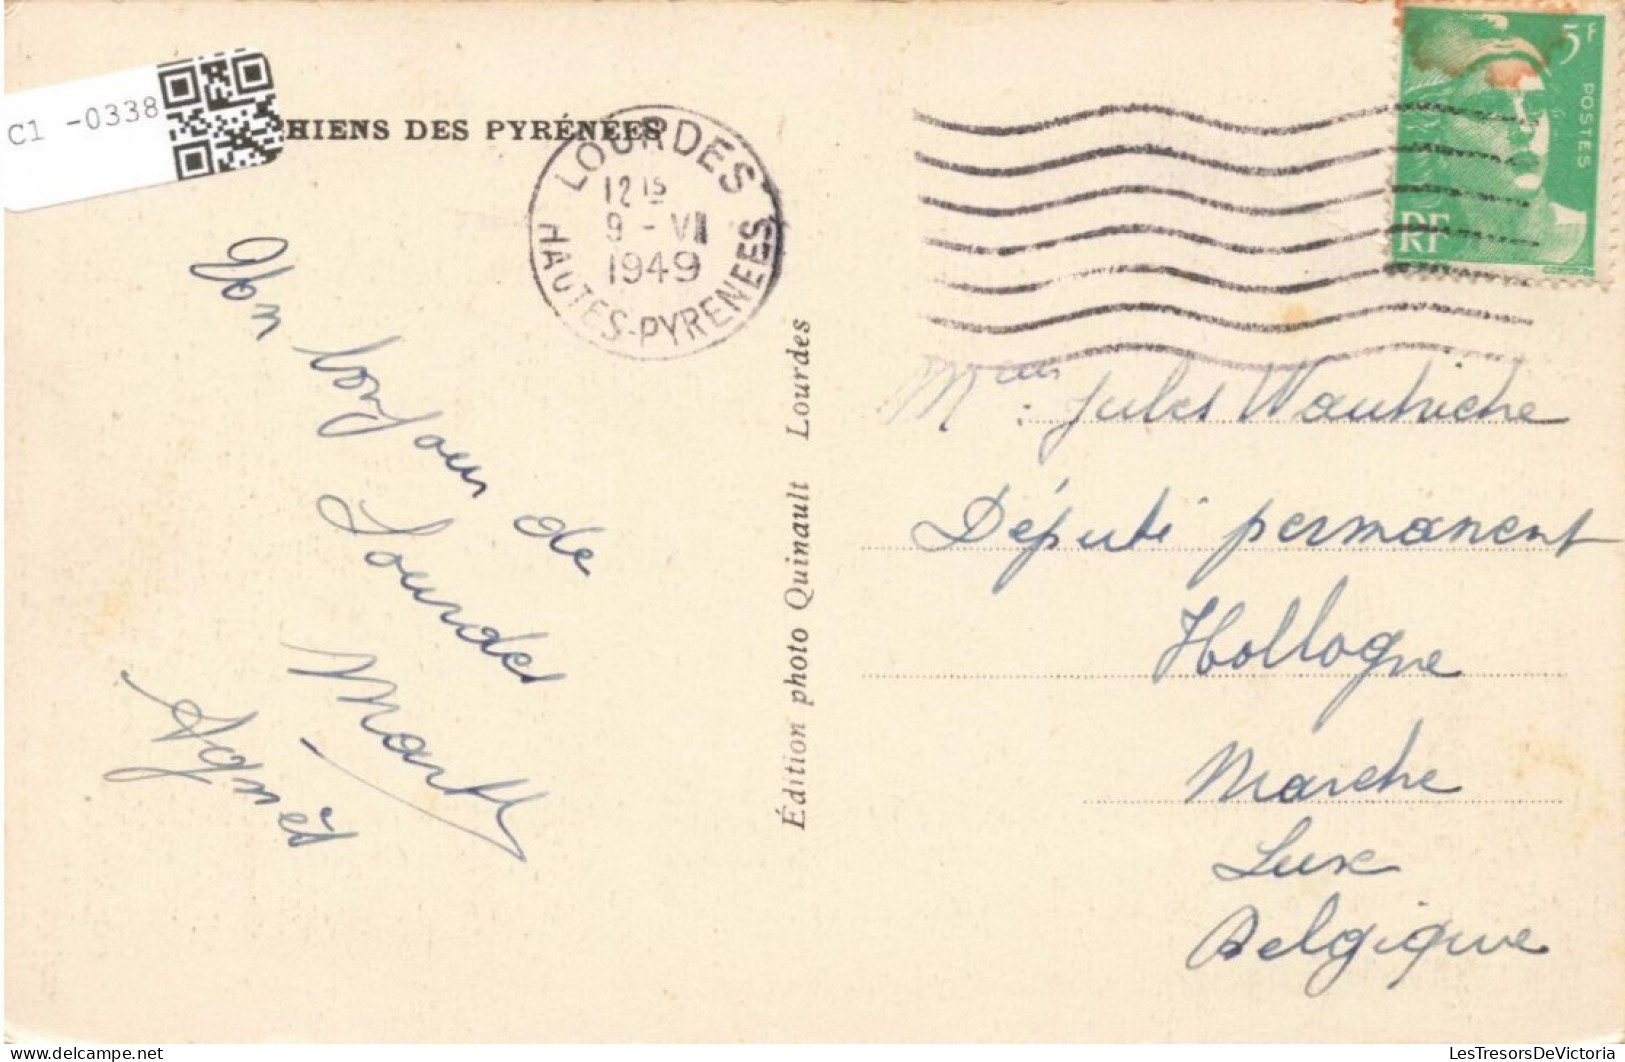 C1 -0338
HIENS DES PYRÉNÉES
LOURDES
12 15
9 - VII
1949
HAUTES-PYRENEES
5F
POSTES
RF
Mon bonjour de
Lourdes
Marth
Agnès
Édition photo Quinault Lourdes
Jules Wauthiche
Député permanent
Hollogne
Marche
Lux
Belgique
LesTresorsDeVictoria